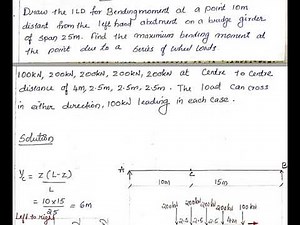 Draw the ILD for Bending moment at a point 10m
distant from the left hand abutment on a bridge girder
of span 25m. Find the maximum bending moment at
the point due to a series of wheel loads
100KN, 200KN, 200KN, 200KN, 200KN at Centre to Centre
distance of 4m, 2.5m, 2.5m, 2.5m. The load can cross
in either direction, 100KN leading in each case.
Solution
A C B
Yc = z(L-z) / L
10m 15m
= 10x15 / 25 = 6m
Left to right
200KN 200KN 200KN 200KN 100KN
2.5 2.5 2.5 4m